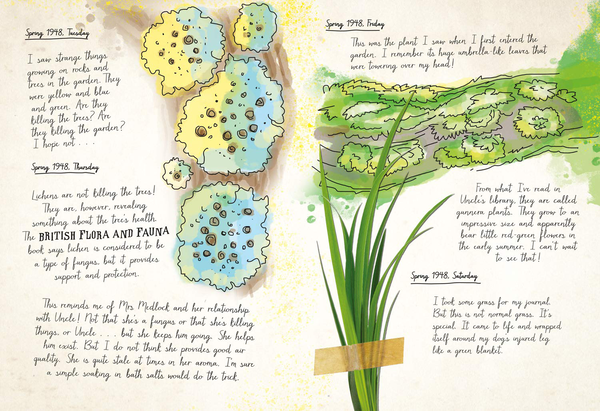 Spring 1948, Tuesday
I saw strange things
growing on rocks and
trees in the garden. They
were yellow and blue
and green. Are they
killing the trees? Are
they killing the garden?
I hope not . . .
Spring 1948, Thursday
Lichens are not killing the trees!
They are, however, revealing
something about the tree's health.
The BRITISH FLORA AND FAUNA
book says lichen is considered to be
a type of fungus, but it provides
support and protection.
This reminds me of Mrs. Medlock and her relationship
with Uncle! Not that she's a fungus or that she's killing
things, or Uncle . . . but she keeps him going. She helps
him exist. But I do not think she provides good air
quality. She is quite stale at times in her aroma. I'm sure
a simple soaking in bath salts would do the trick.
Spring 1948, Friday
This was the plant I saw when I first entered the
garden. I remember its huge umbrella-like leaves that
were towering over my head!
From what I've read in
Uncle's library, they are called
gunnera plants. They grow to an
impressive size and apparently
bear little red-green flowers in
the early summer. I can't wait
to see that!
Spring 1948, Saturday
I took some grass for my journal.
But this is not normal grass. It's
special. It came to life and wrapped
itself around my dog's injured leg
like a green blanket.